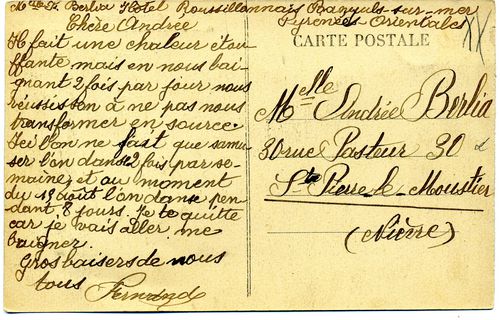 Berlia Hôtel Roussillonnais Banyuls-sur-mer
Pyrénées Orientales
Chère Andrée
Il fait une chaleur étou
ffante mais en nous bai-
gnant 2 fois par jour nous
réussison à ne pas nous
transformer en source.
Ici l'on ne fait que s'amu
ser l'on danse 2 fois par se-
maine et au moment
du 15 août l'on danse pen-
dant 8 jours. Je te quitte
car je vais aller me
baigner.
Gros baisers de nous
tous
Fernand
CARTE POSTALE
Melle Andrée Berlia
30 rue Pasteur 30
St Pierre-le-Moustier
(Nièvre)